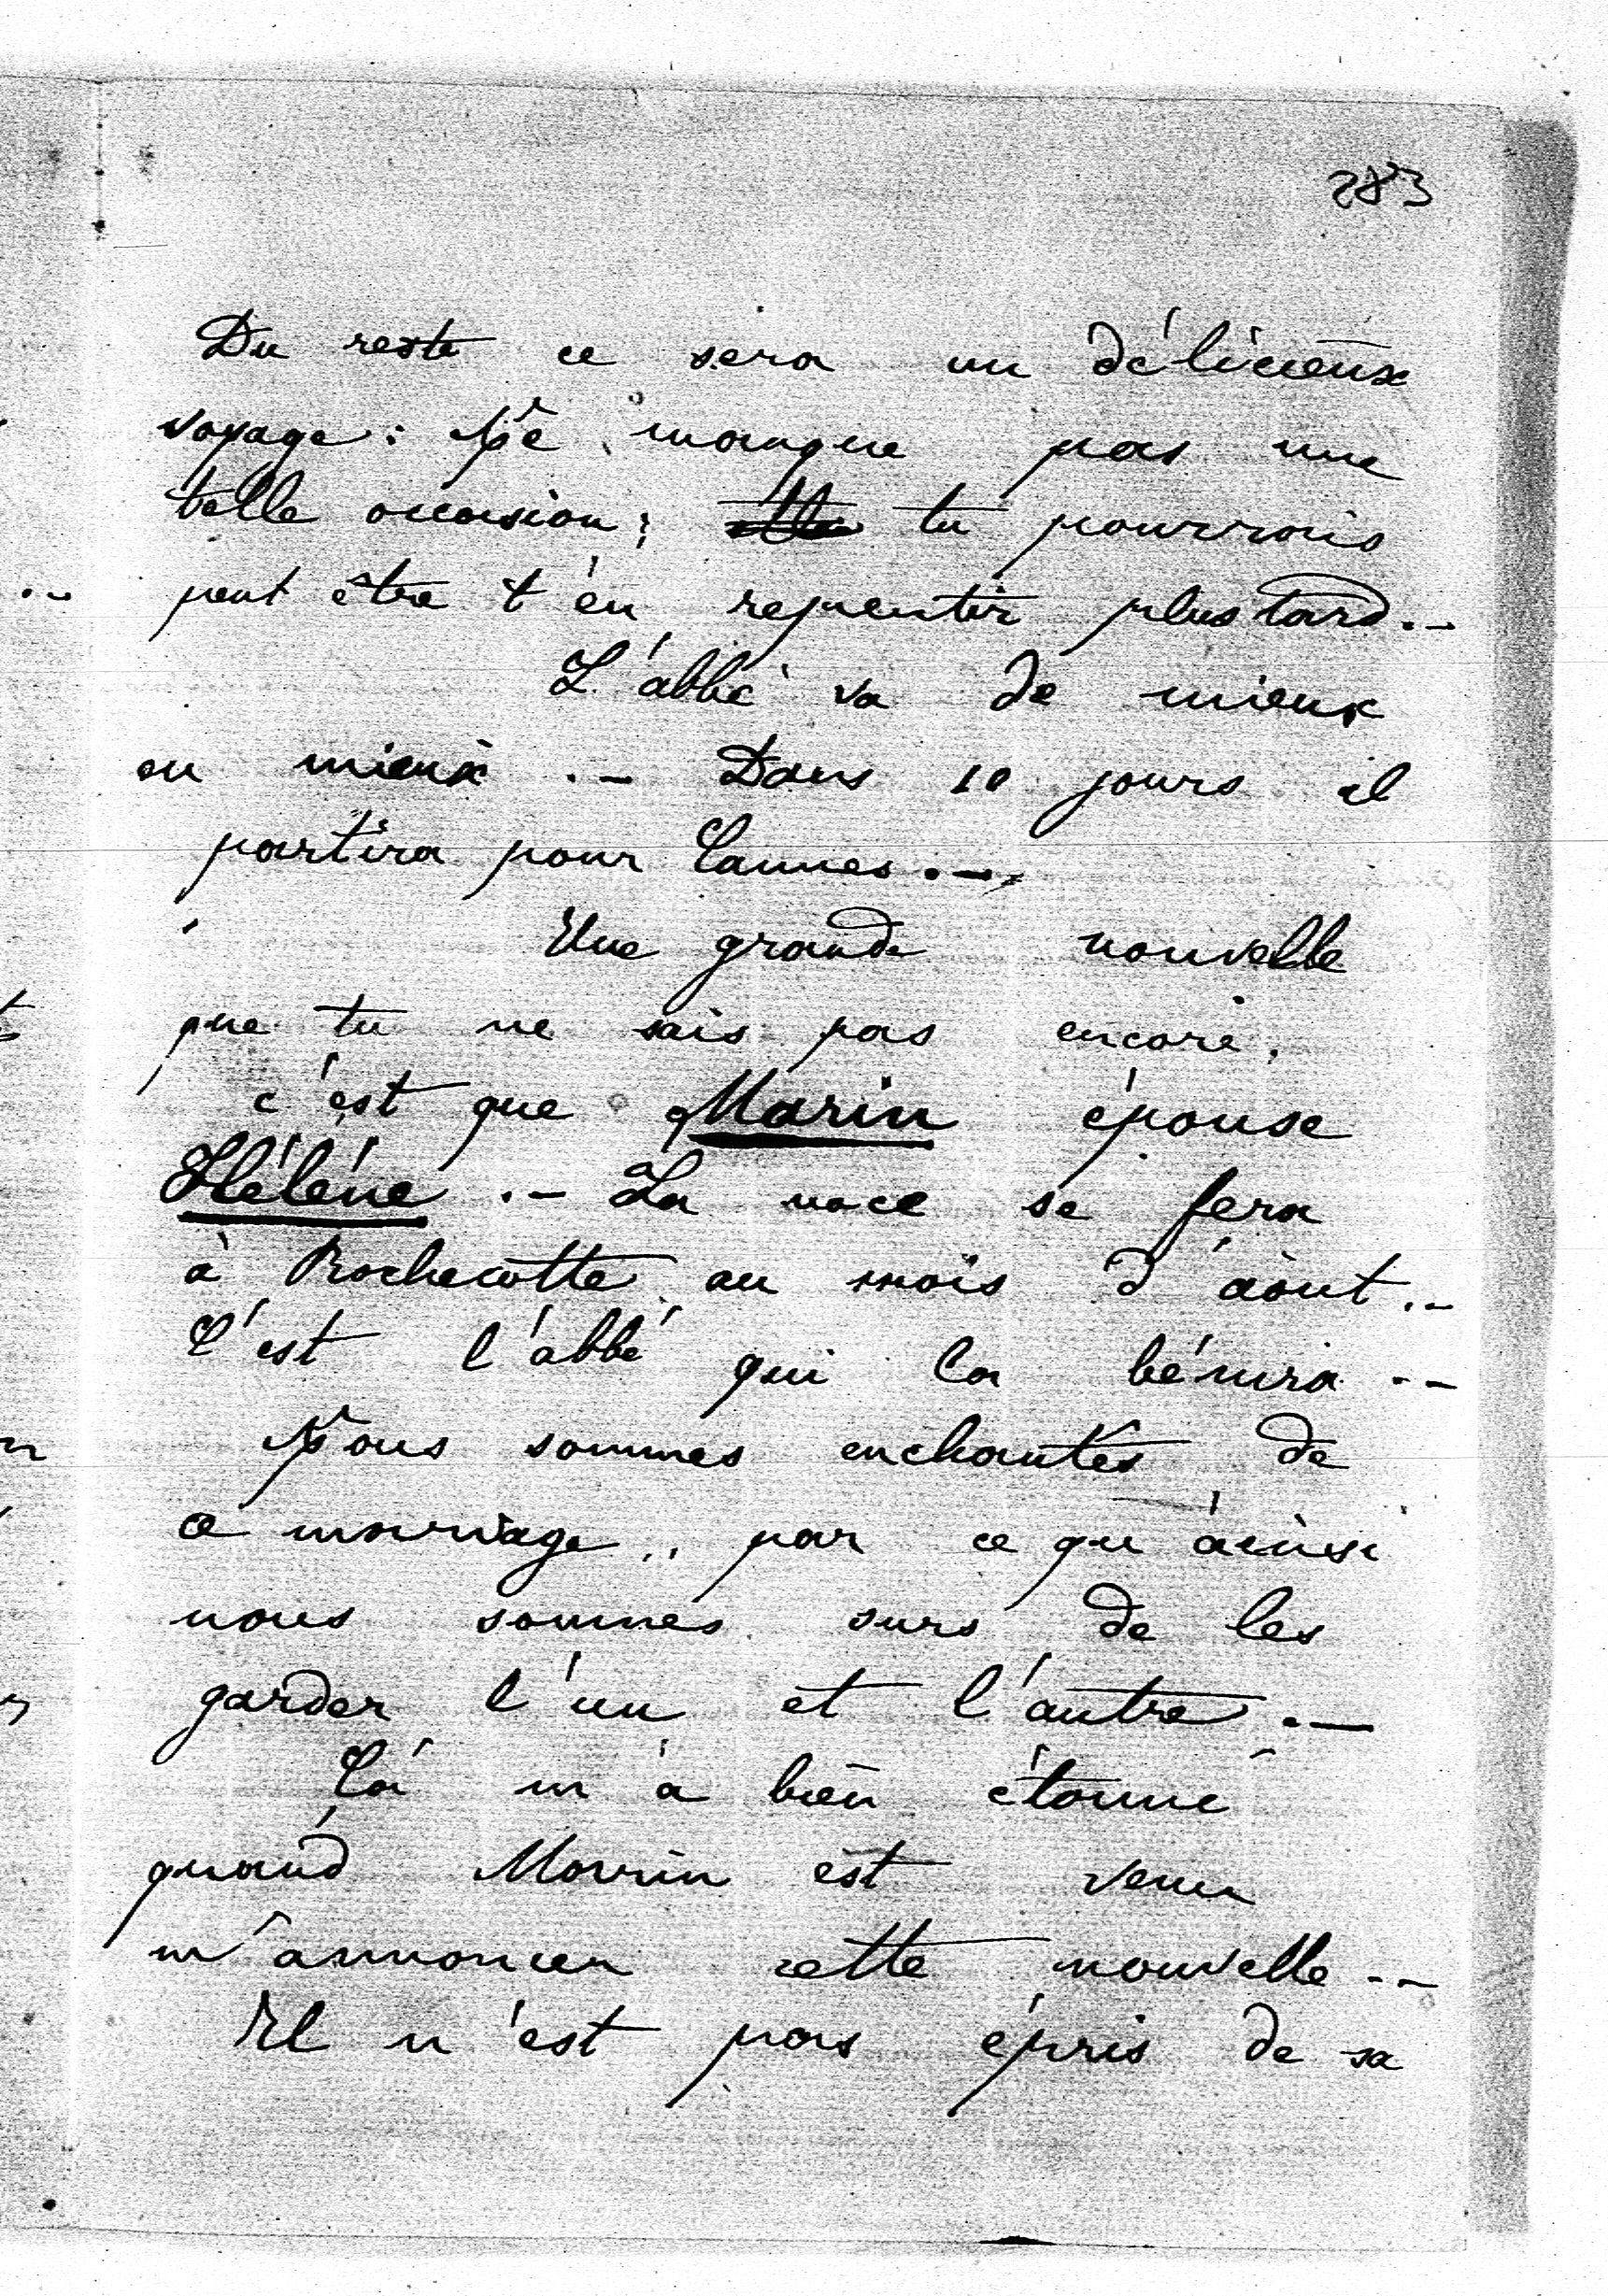 283
Du reste ce sera un délicieux
voyage : Ne manque pas une
telle occasion ; tu pourrais
peut être t'en repentir plus tard .-
L'abbé va de mieux
en mieux .- Dans 10 jours il
partira pour Cannes .-
Une grande nouvelle
que tu ne sais pas encore,
c'est que Marin épouse
Hélène .- La noce se fera
à Rochecotte au mois d'août .-
C'est l'abbé qui la bénira .-
Nous sommes enchantés de
ce mariage, par ce qu'ainsi
nous sommes surs de les
garder l'un et l'autre .-
Cà m'a bien étonné
quand Marin est venu
m'annoncer cette nouvelle .-
Il n'est pas épris de sa